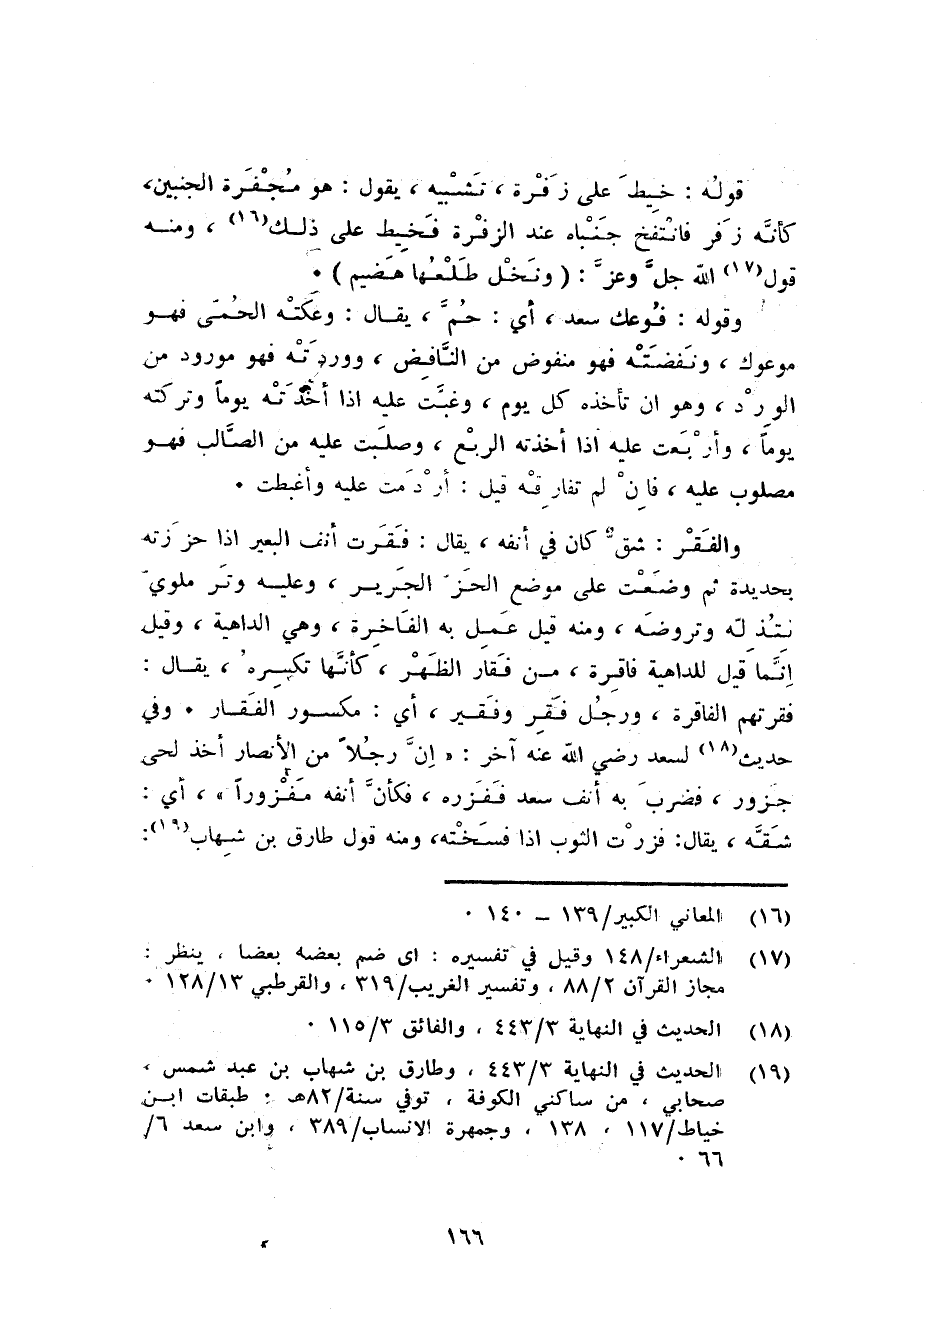 قولُه : خِيطَ على زَفْرة ، تَشْبيه ، يقول : هو مُجْفَرة الجنبين،
كأنَّه زَفر فانْتفخ جَنْباه عند الزفْرة فَخِيط على ذلك(١٦) ، ومنه
قول(١٧) الله جلَّ وعزَّ : ( ونَخْل طَلْعُها هَضيم ) ٠
وقوله : فوُعك سعد ، أي : حُمَّ ، يقال : وعَكَتْه الحُمّى فهو
موعوك ، ونَفَضَتْه فهو منفوض من النَّافِض ، ووردَتْه فهو مورود من
الوِرْد ، وهو ان تأخذه كل يوم ، وغبَّت عليه اذا أخَذَتْه يوماً وتركته
يوماً ، وأرْبَعت عليه اذا أخذته الربْع ، وصلَبت عليه من الصَّالب فهو
مصلوب عليه ، فاِنْ لم تفارِقْه قيل : أرْدَمت عليه وأغبطت ٠
والفَقْر : شقٌّ كان في أنفه ، يقال : فَقَرت أنف البعير اذا حززَته
بحديدة ثم وضَعْت على موضع الحَزّ الجَرير ، وعليه وتَر ملويّ
لتُذِلّه وتروضَه ، ومنه قيل عَمِل به الفَاخِرة ، وهي الداهية ، وقيل
اِنَّما قيل للداهية فاقِرة ، من فَقار الظَهْر ، كأنَّها تكسِره ، يقال :
فقرتهم الفاقرة ، ورجُل فَقِر وفَقير ، أي : مكسور الفَقار ٠ وفي
حديث(١٨) لسعد رضي الله عنه آخر : « اِنَّ رجُلاً من الأنصار أخذ لحى
جَزور ، فضربَ به أنف سعد فَفَزره ، فكأنَّ أنفه مَفْزوراً » ، أي :
شَقَّه ، يقال: فزرْت الثوب اذا فسَخْته، ومنه قول طارق بن شِهاب(١٩):
(١٦) المعاني الكبير/١٣٩ – ١٤٠ ٠
(١٧) الشعراء/١٤٨ وقيل في تفسيره : اى ضم بعضه بعضا ، ينظر :
مجاز القرآن ٨٨/٢ ، وتفسير الغريب/٣١٩ ، والقرطبي ١٢٨/١٣ ٠
(١٨) الحديث في النهاية ٤٤٣/٣ ، والفائق ١١٥/٣ ٠
(١٩) الحديث في النهاية ٤٤٣/٣ ، وطارق بن شهاب بن عبد شمس ،
صحابي ، من ساكني الكوفة ، توفي سنة/٨٢هـ : طبقات ابن
خياط/١١٧ ، ١٣٨ ، وجمهرة الانساب/٣٨٩ ، وابن سعد ٦/
٦٦ ٠
١٦٦